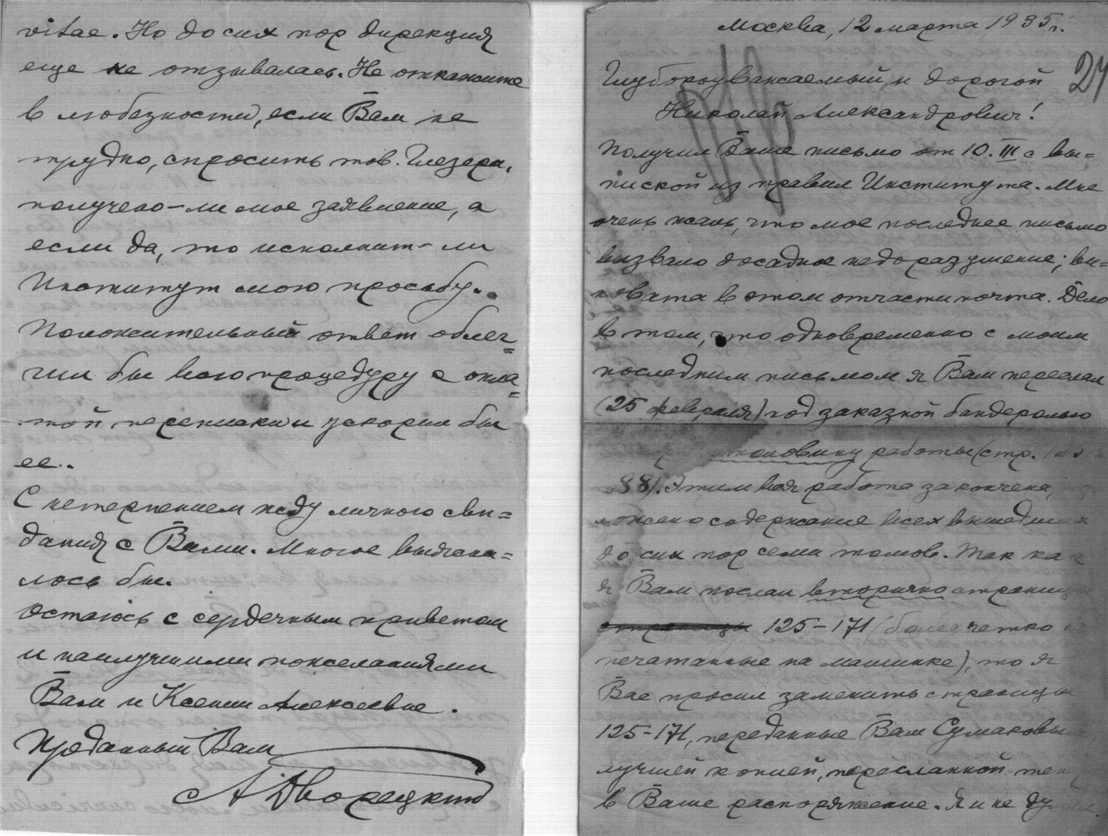 vitae. Но до сих пор дирекция
еще не отзывалась. Не откажите
в любезности, если Вам не
трудно, спросить тов. Глезера,
получено-ли мое заявление, а
если да, то исполнит-ли
Институт мою просьбу.
Положительный ответ облег=
чил бы всю процедуру с опла=
той переписки и ускорил бы
ее.
С нетерпением жду личного сви=
дания с Вами. Многое выясни=
лось бы.
Остаюсь с сердечным приветом
и наилучшими пожеланиями
Вам и Ксении Алексеевне.
Преданный Вам
А Дворецкий
Москва, 12 марта 1935 г.
27
Глубокоуважаемый и дорогой
Николай Александрович!
Получил Ваше письмо от 10.III с вы=
пиской из правил Института. Мне
очень жаль, что мое последнее письмо
вызвало досадное недоразумение; ви=
новата в этом отчасти почта. Дело
в том, что одновременно с моим
последним письмом я Вам переслал
(25 февраля) под заказной бандеролью
половину работы (стр.
88). Этим вся работа закончена,
содержание всех вышедших
до сих пор семи томов. Так как
я Вам послал вторично страницы
125-171 (более четко
печатанные на машинке), то я
Вас просил заменить страницы
125-171, переданные Вам Сумаковым
лучшей копией, пересланной
в Ваше распоряжение. Я и не